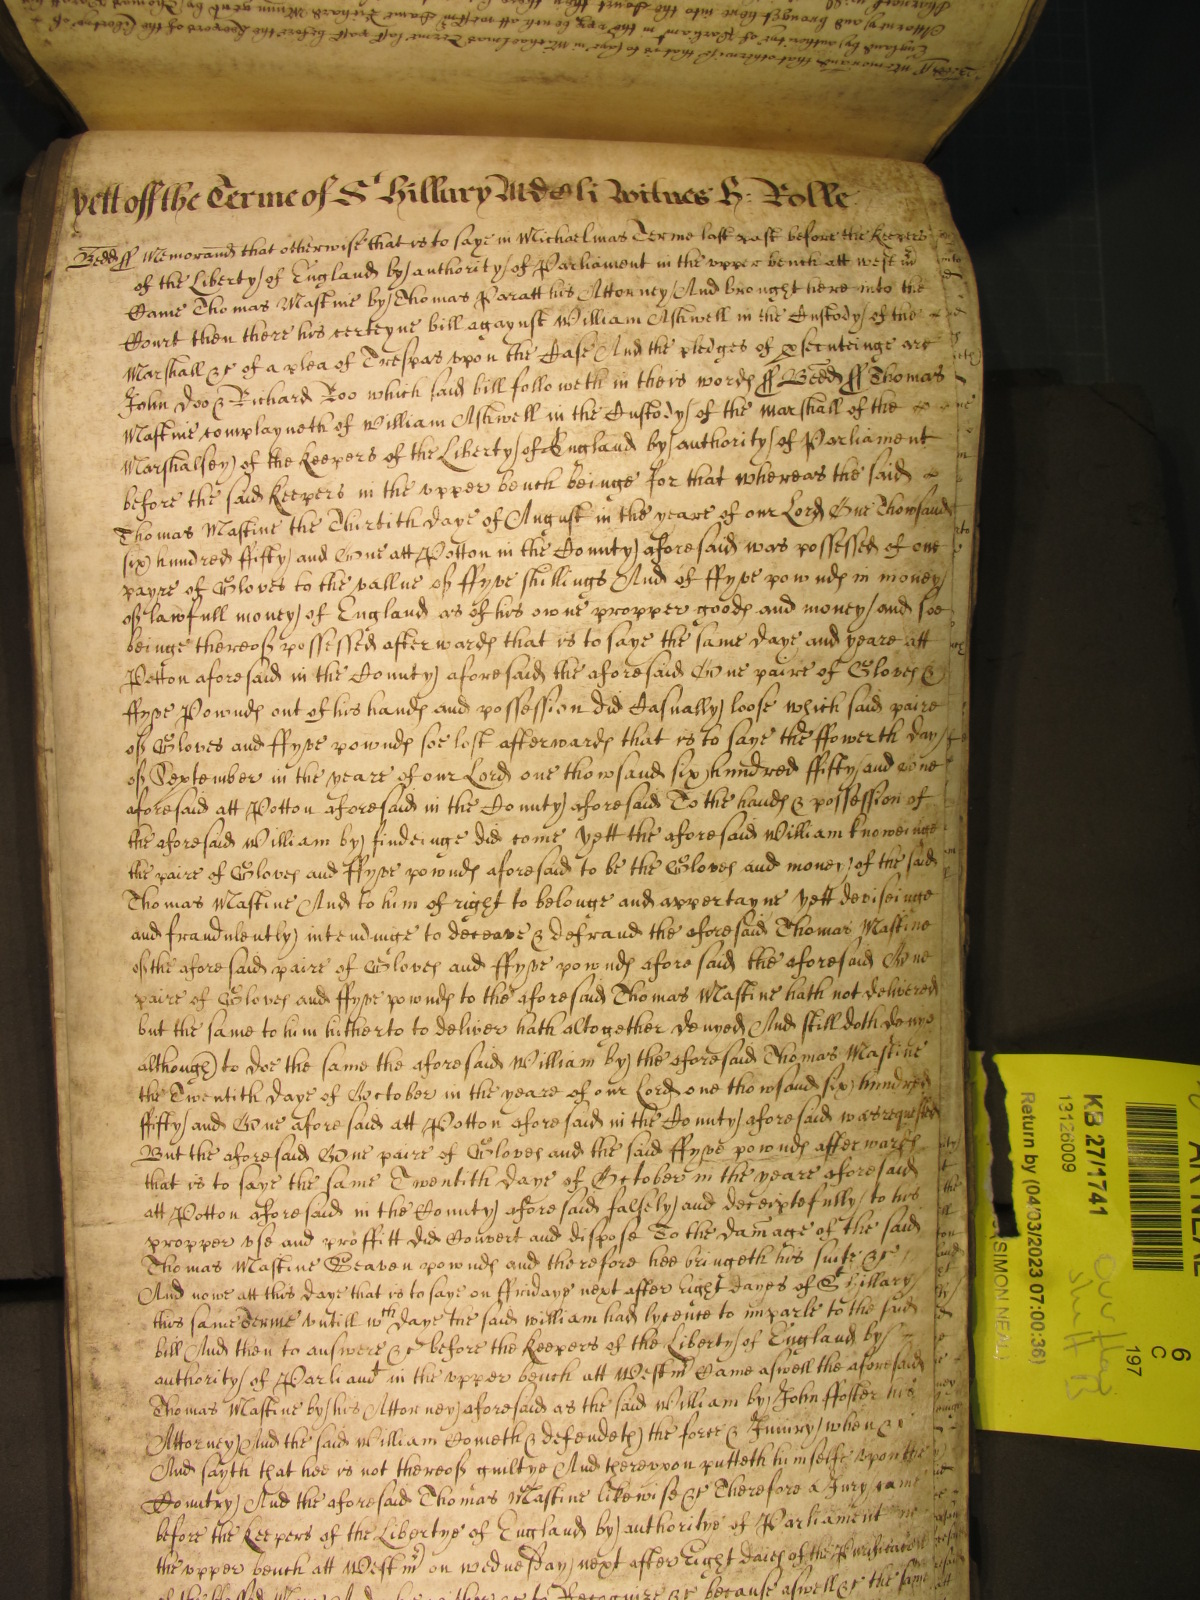 yett off the Terme of St Hillary MDCli Witnes H: Rolle
Bedd ff Memorand that otherwise that is to saye in Michaelmas Terme last past before the Keepers
of the Liberty of England by authority of Parliament in the upper bench att Westm
Came Thomas Mastine by Thomas Paratt his Attorney And brought here into the
Court then there his certeyne bill agaynst William Ashwell in the Custody of the
Marshall &c of a plea of Trespas upon the Case And the pledges of prsecuteinge are
John Doo & Richard Roo which said bill followeth in theis wordes ff Bedd ff Thomas
Mastine complayneth of William Ashwell in the Custody of the marshall of the
Marshalsey of the Keepers of the Liberty of England by authority of Parliament
before the said Keepers in the upper bench beinge for that whereas the said
Thomas Mastine the Thirtith daye of August in the yeare of our Lord One Thowsand
six hundred ffifty and One att Potton in the County aforesaid was possessed of one
payre of Gloves to the vallue of ffyve shillings And of ffyve powndes in money
of lawfull money of England as of his owne propper goodes and money and soe
beinge thereof possessed afterwardes that is to saye the same daye and yeare att
Potton aforesaid in the County aforesaid the aforesaid One paire of Gloves &
ffyve Powndes out of his handes and possession did Casually loose which said paire
of Gloves and ffyve powndes soe lost afterwardes that is to saye the ffowerth day
of September in the yeare of our Lord one thowsand six hundred ffifty and one
aforesaid att Potton aforesaid in the County aforesaid To the handes & possession of
the aforesaid William by findeinge did come yett the aforesaid William knoweinge
the paire of Gloves and ffyve powndes aforesaid to be the Gloves and money of the said
Thomas Mastine And to him of right to belonge and appertayne yett deviseinge
and fraudulently intendinge to deceave & defraud the aforesaid Thomas Mastine
of the aforesaid paire of Gloves and ffyve powndes aforesaid the aforesaid One
paire of Gloves and ffyve powndes to the aforesaid Thomas Mastine hath not delivered
but the same to him hitherto to deliver hath altogether denyed And still doth denye
although to doe the same the aforesaid William by the aforesaid Thomas Mastine
the Twentith daye of October in the yeare of our Lord one thowsand six hundred
ffifty and One aforesaid att Potton aforesaid in the County aforesaid was requested
But the aforesaid One paire of Gloves and the said ffyve powndes afterwardes
that is to saye the same Twentith daye of October in the yeare aforesaid
att Potton aforesaid in the County aforesaid falsely and deceiptefully to his
propper use and proffitt did Convert and dispose To the damage of the said
Thomas Mastine Seaven powndes and therefore hee bringeth his suite &c
And nowe att this daye that is to saye on ffridaye next after Eight dayes of St Hillary
this same Terme untill wch daye the said William had lycence to imparle to the said
bill And then to answere &c before the Keepers of the Liberty of England by
authority of Parliamt in the upper bench att Westm Came aswell the aforesaid
Thomas Mastine by his Attorney aforesaid as the said William by John ffoster his
Attorney And the said William Cometh & defendeth the force & Iniury when &c
And sayth that hee is not thereof guiltye And thereupon putteth himselfe upon the
Country And the aforesaid Thomas Mastine likewise &c Therefore a Jury came
before the Keepers of the Libertye of England by authoritye of Parliament in
the upper bench att Westm on wednesday next after Eight daies of the Purificacon
Recognize &c because aswell &c the same
KB 27/1741
13126009
Return by (04/03/2023 07:00:36)
(SIMON NEAL)
6
C
197